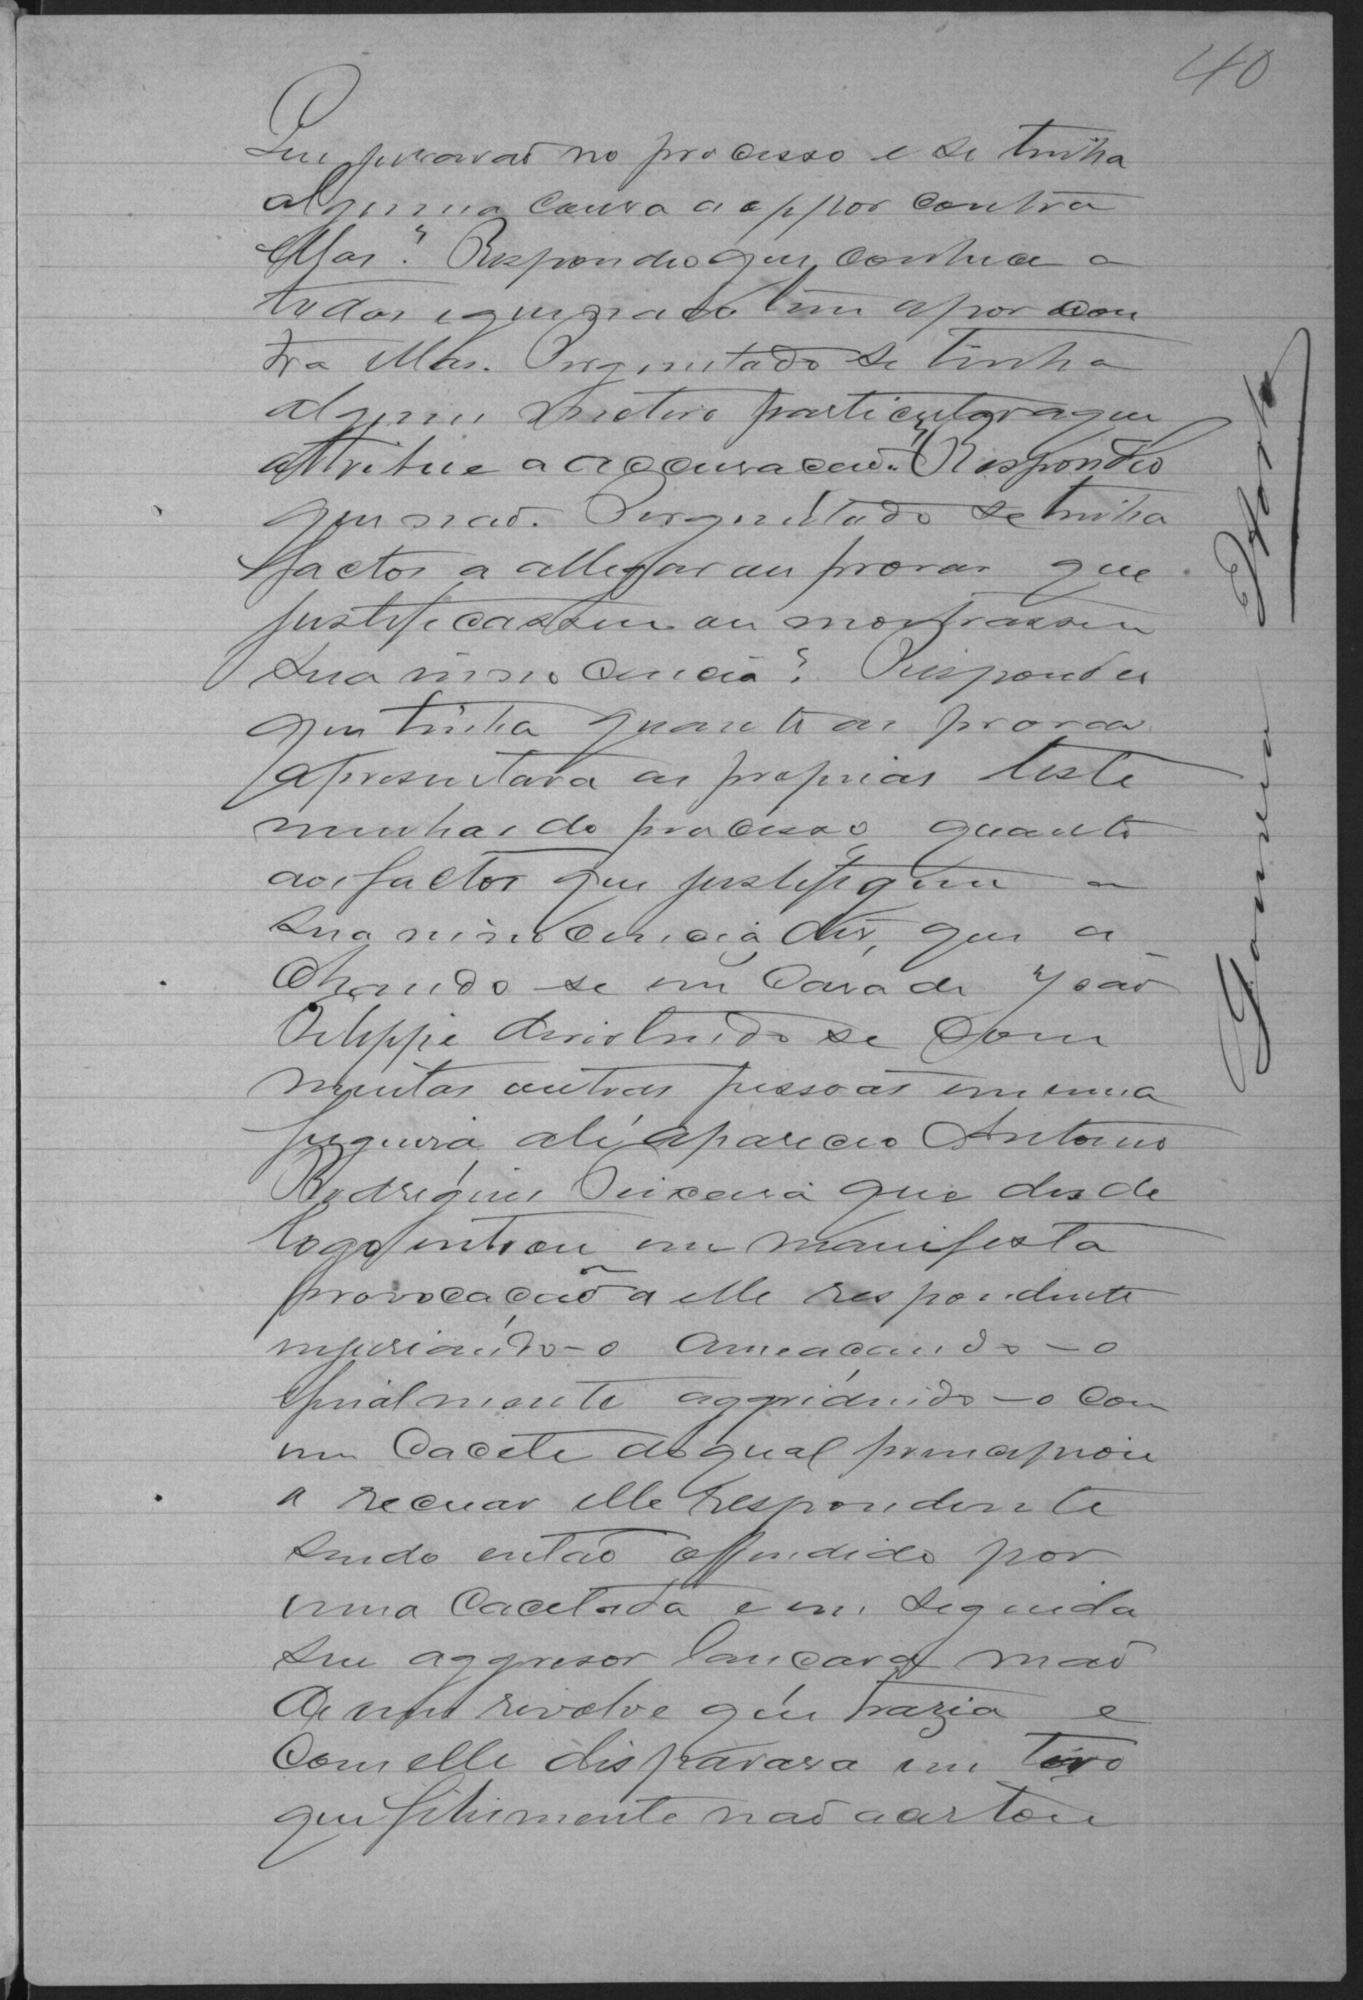 40
Que juraraõ no processo e se tinha
alguma cousa a oppor contra
ellas? Respondeo que conhece a
todas e que nada tem a por con
tra ellas. Perguntado se tinha
algum motivo particular a que
attribue a accusacaõ? Respondeo
que naõ. Perguntado se tinha
factos a allegar ou provas que
justificassem ou mostrassem
sua innocencia? Respondeu
que tinha quanto as provas
apresentara as proprias teste
munhas do processo, quanto
aos factos que justifiquem a
sua innocencia, diz, que a
chando se em casa de Joaõ
Felippe devirtindo se com
muitas outras pessoas em uma
fugueira, ali apareceo Antonio
Rodrigues Teixeira que desde
logo entrou em manifesta
provocacaõ a elle respondente
injuriando-o ameacando-o
e finalmente aggridindo-o com
um cacete do qual principiou
a recuar elle respondente
sendo entaõ offendido por
uma cacetada e em seguida
seu aggresor lancara maõ
de um revolve que trazia e
com elle disparara um tiro
que filismente naõ acertou
Ferreira Horta